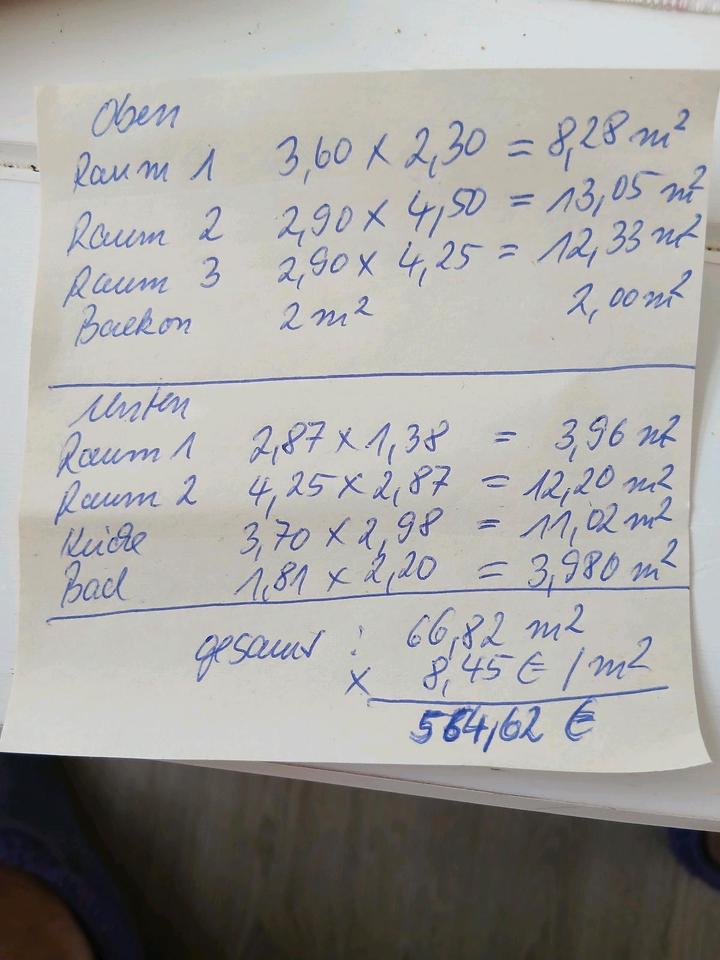 Oben
Raum 1 3,60 x 2,30 = 8,28 m²
Raum 2 2,90 x 4,50 = 13,05 m²
Raum 3 2,90 x 4,25 = 12,33 m²
Balkon 2 m² 2,00 m²
Unten
Raum 1 2,87 x 1,38 = 3,96 m²
Raum 2 4,25 x 2,87 = 12,20 m²
Küche 3,70 x 2,98 = 11,02 m²
Bad 1,81 x 2,20 = 3,980 m²
gesamt : 66,82 m²
x 8,45 € / m²
564,62 €